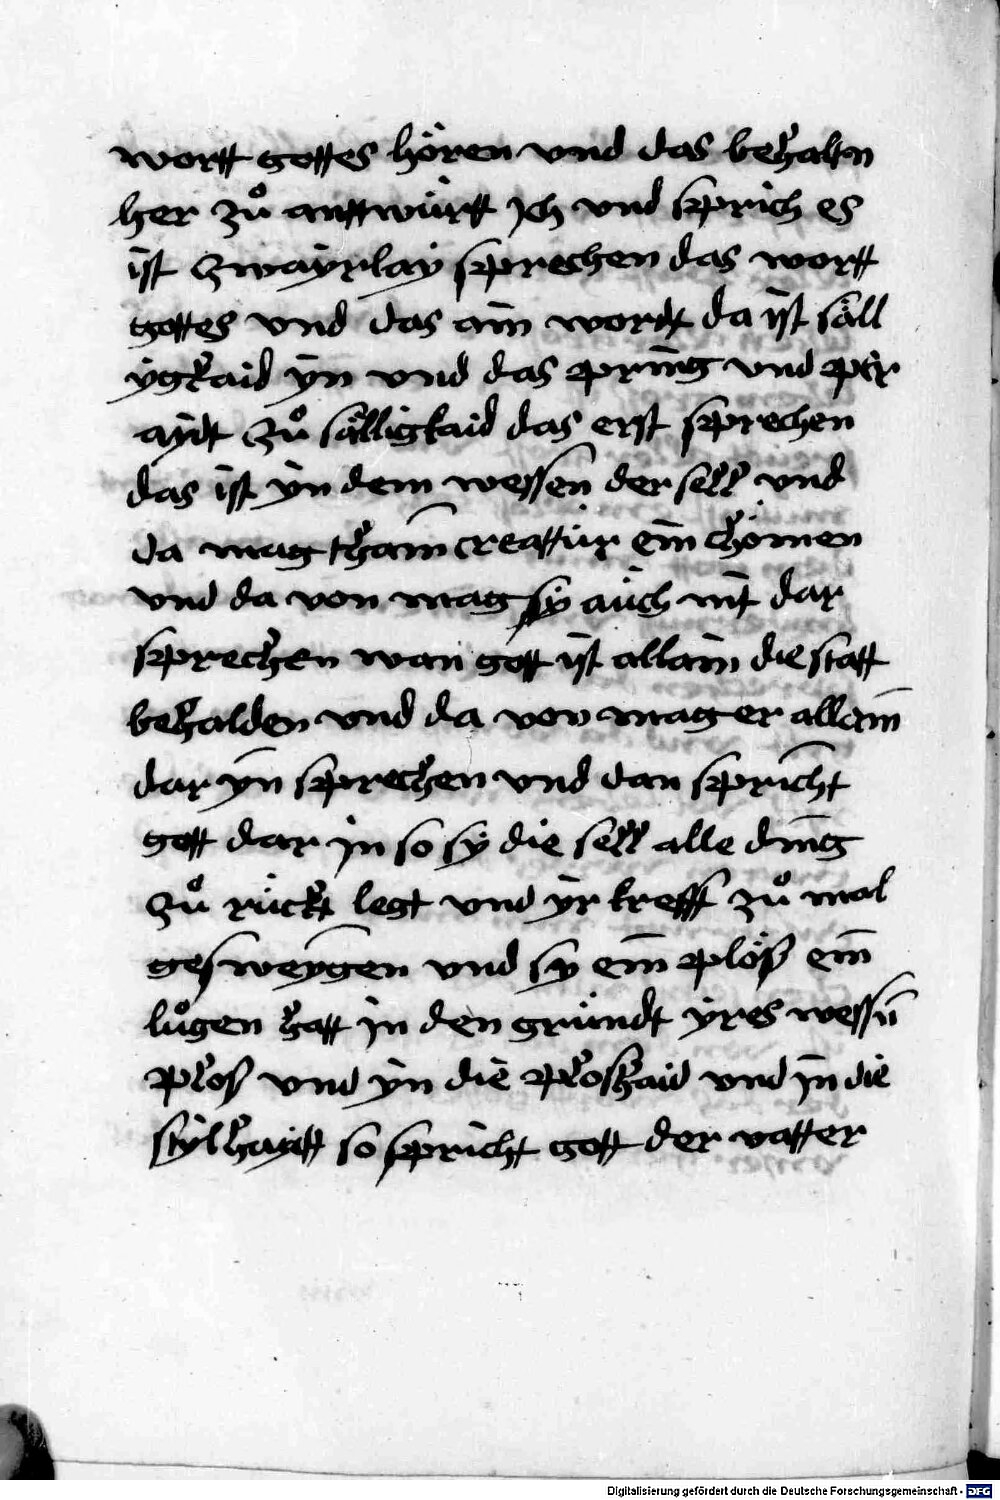 wortt gottes hören vnd das behaltn
her zů anttwürtt Jch vnd sprich es
ist zwayrlay sprechen das wortt
gottes vnd das ain wordt da ist säll
ygkaid yn vnd das pring vnd per
aydt zů sälligkaid das erst sprechen
das ist yn dem wessen der sell vnd
da mag kham creattür ein chömen
vnd da von mag sy auch nit dar
sprechen wan gott ist allain die statt
behalden vnd da von mag er allain
dar yn sprechen vnd dan spricht
gott dar jn so sy die sell alle ding
zů rückt legt vnd yr krefft zů mol
gesweygen vnd sy ein plöß ein
lůgen hatt jn den gründt yres wessn
ploß vnd yn die ploshaid vnd jn die
stylhaytt so spricht gott der vatter
Digitalisierung gefördert durch die Deutsche Forschungsgemeinschaft - DFG